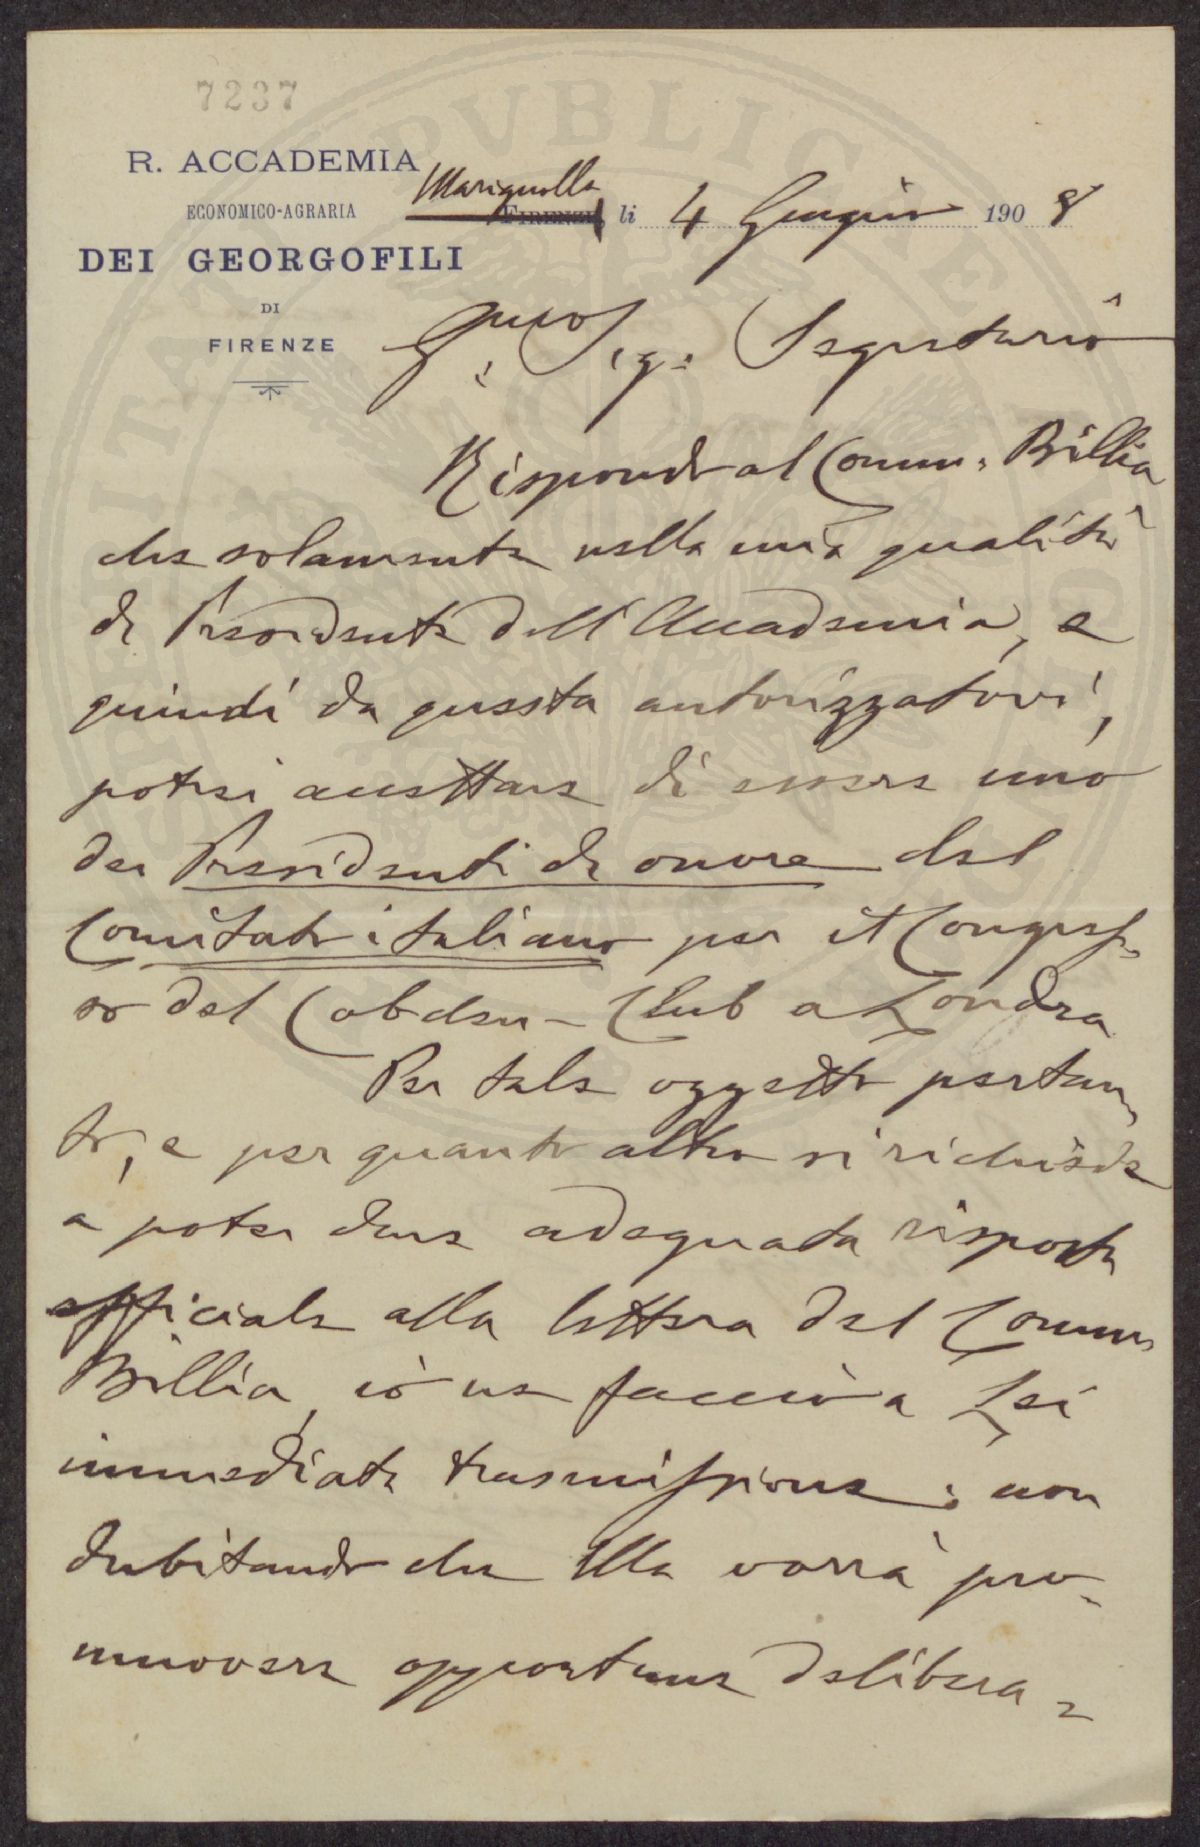 7237
R. ACCADEMIA
ECONOMICO-AGRARIA
DEI GEORGOFILI
DI
FIRENZE
Marignolla
FIRENZE, li 4 Giugno 1908
Sig. Segretario
Rispondo al Comm. Billia
che solamente nella mia qualità
di Presidente dell'Accademia, e
quindi da questa autorizzatovi,
potrei accettare di essere uno
dei Presidenti di onore del
Comitato italiano per il Congres-
so del Cobden-Club a Londra
Per tale oggetto pertan-
to, e per quanto altro si richiede
a poter dare adeguata risposta
officiale alla lettera del Comm.
Billia, io ne faccio a Lei
immediata trasmissione; non
dubitando che Ella vorrà pro-
muovere opportune delibera-